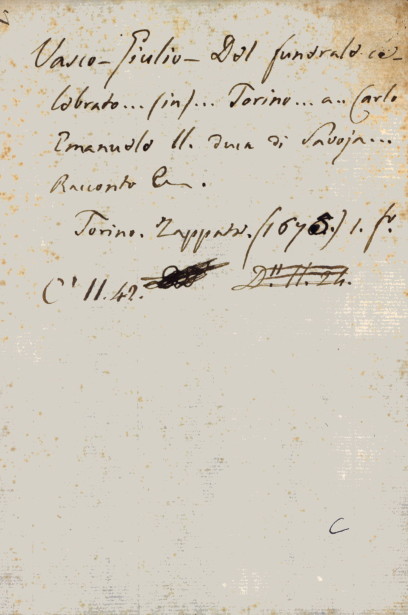 Vasco - Giulio - Del funerale ce-
lebrato... (in)... Torino... a.. Carlo
Emanuele II. duca di Savoja...
Racconto
Torino. Zappata. (1675.) 1. fo.
C' II. 42. D'' II. 24.
C